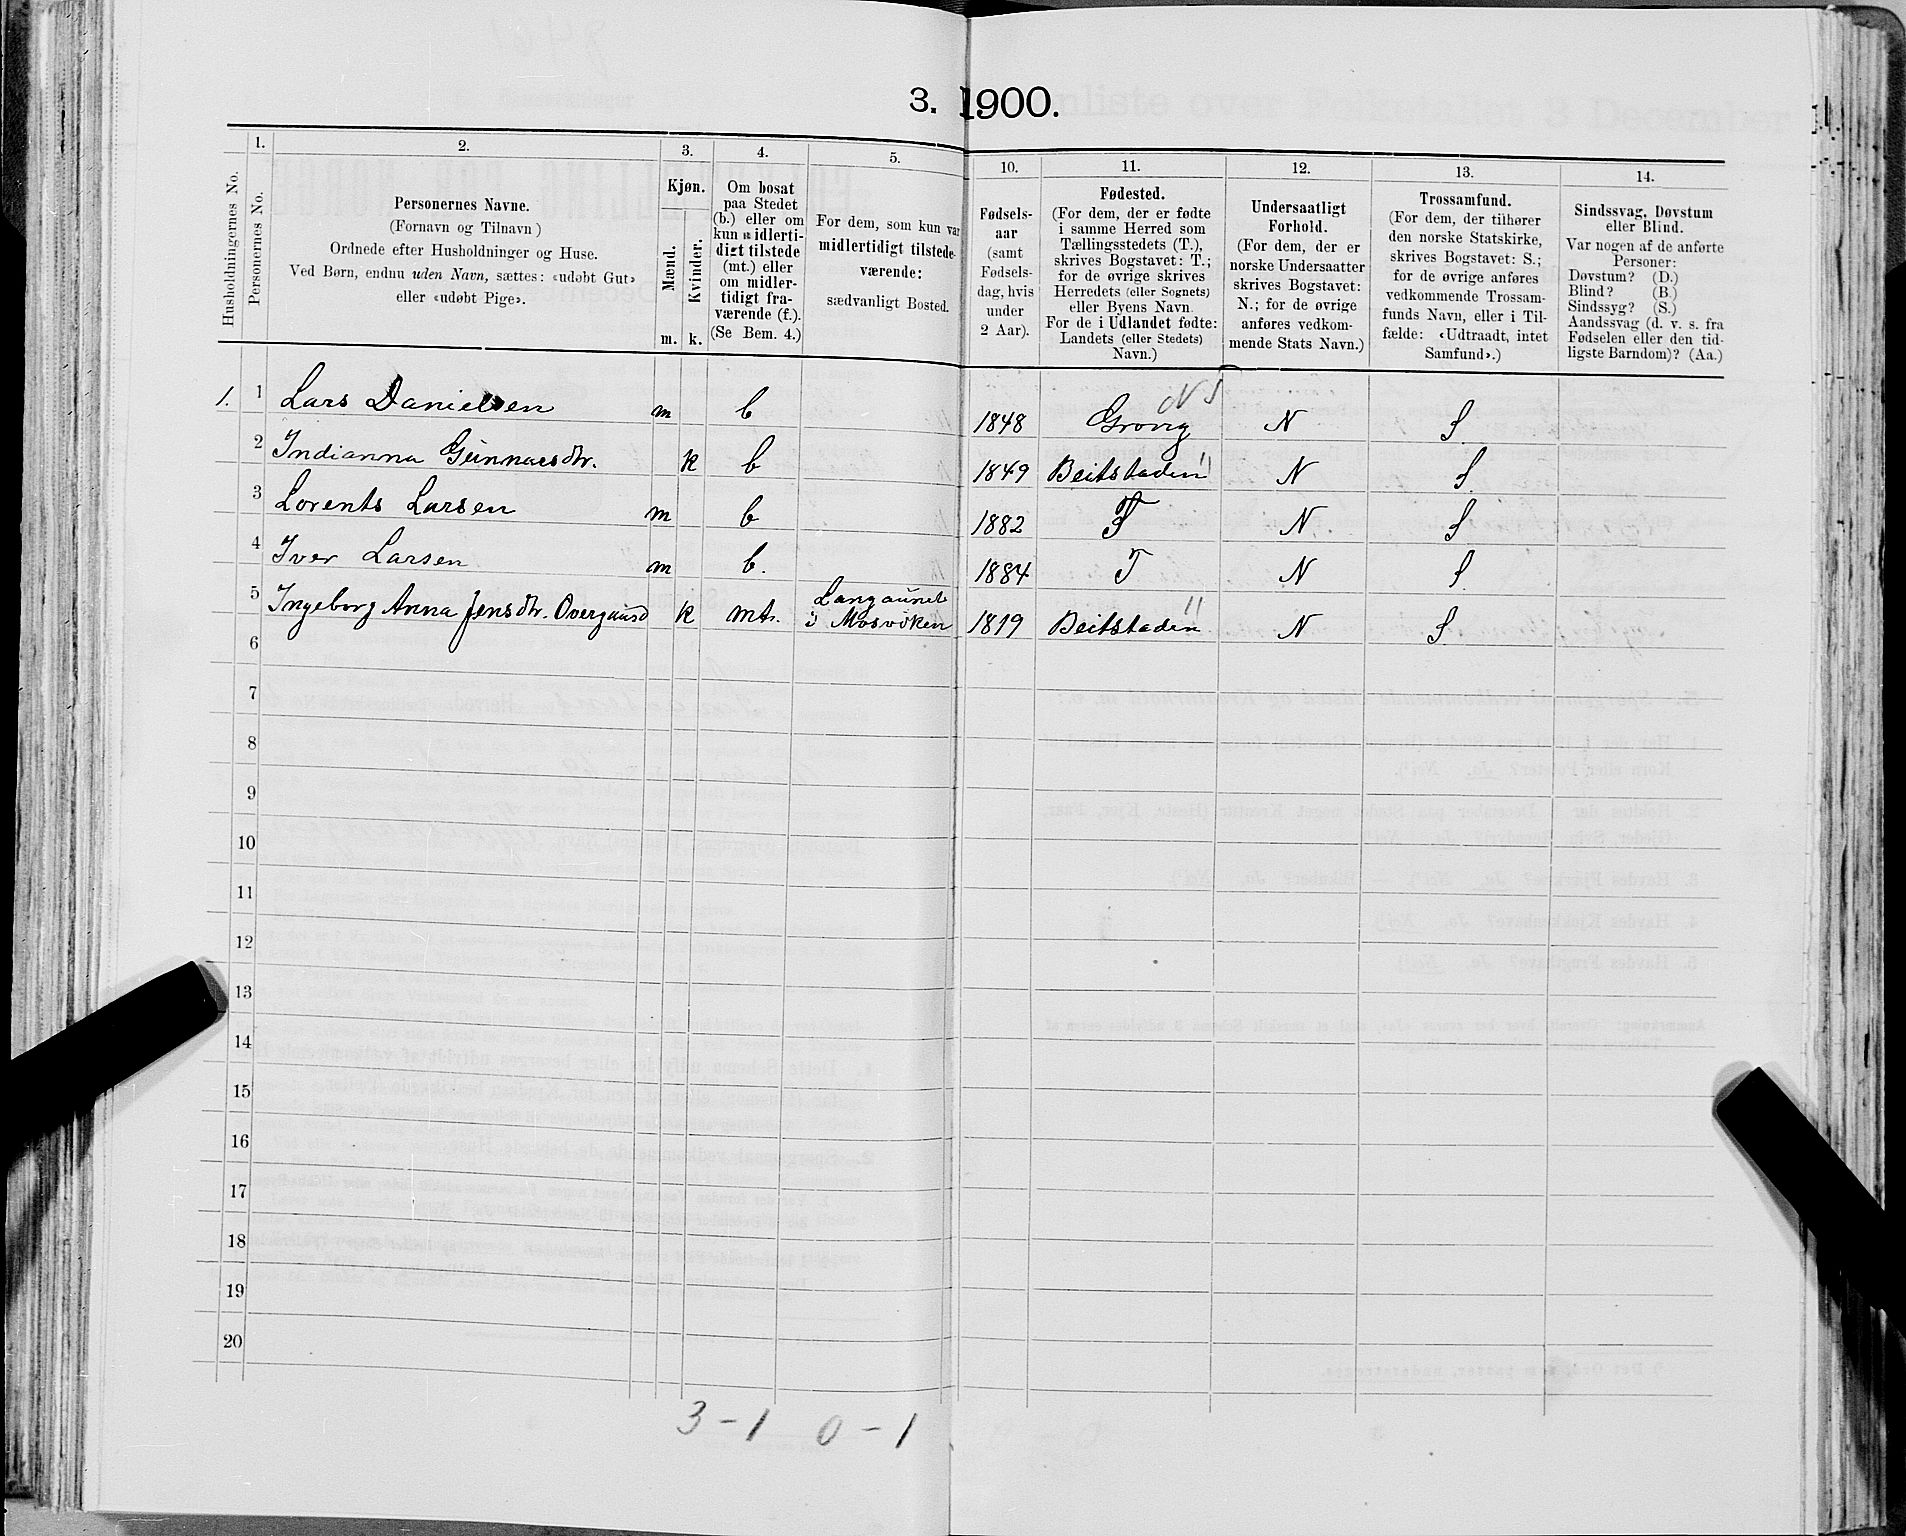 3. 1900.
1. 2. 3. 4. 5. 10. 11. 12. 13. 14.
Husholdningernes No.
Personernes No.
Personernes Navne.
(Fornavn og Tilnavn)
Ordnede efter Husholdninger og Huse.
Ved Børn, endnu uden Navn, sættes: «udøbt Gut»
eller «udøbt Pige».
Kjøn.
Mænd.
Kvinder.
m. k.
Om bosat
paa Stedet
(b.) eller om
kun midlerti-
digt tilstede
(mt.) eller
om midler-
tidigt fra-
værende (f.).
(Se Bem. 4.)
For dem, som kun var
midlertidigt tilstede-
værende:
sædvanligt Bosted.
Fødsels-
aar
(samt
Fødsels-
dag, hvis
under
2 Aar).
Fødested.
(For dem, der er fødte
i samme Herred som
Tællingsstedets (T.),
skrives Bogstavet: T.;
for de øvrige skrives
Herredets (eller Sognets)
eller Byens Navn.
For de i Udlandet fødte:
Landets (eller Stedets)
Navn.)
Undersaatligt
Forhold.
(For dem, der er
norske Undersaatter
skrives Bogstavet:
N.; for de øvrige
anføres vedkom-
mende Stats Navn.)
Trossamfund.
(For dem, der tilhører
den norske Statskirke,
skrives Bogstavet: S.;
for de øvrige anføres
vedkommende Trossam-
funds Navn, eller i Til-
fælde: «Udtraadt, intet
Samfund».)
Sindssvag, Døvstum
eller Blind.
Var nogen af de anførte
Personer:
Døvstum? (D.)
Blind? (B.)
Sindssyg? (S.)
Aandssvag (d. v. s. fra
Fødselen eller den tid-
ligste Barndom)? (Aa.)
1. 1 Lars Danielsen m b 1848 Grong N S.
2 Indianna Gunnarsdtr. k b 1849 Beitstaden " N S.
3 Lorents Larsen m b 1882 T N S.
4 Iver Larsen m b. 1884 T N S.
5 Ingeborg Anna Jensdtr. Overgaard k mt. Langaunet
i Mosviken 1819 Beitstaden " N S.
6
7
8
9
10
11
12
13
14
15
16
17
18
19
20
3 - 1 0 - 1